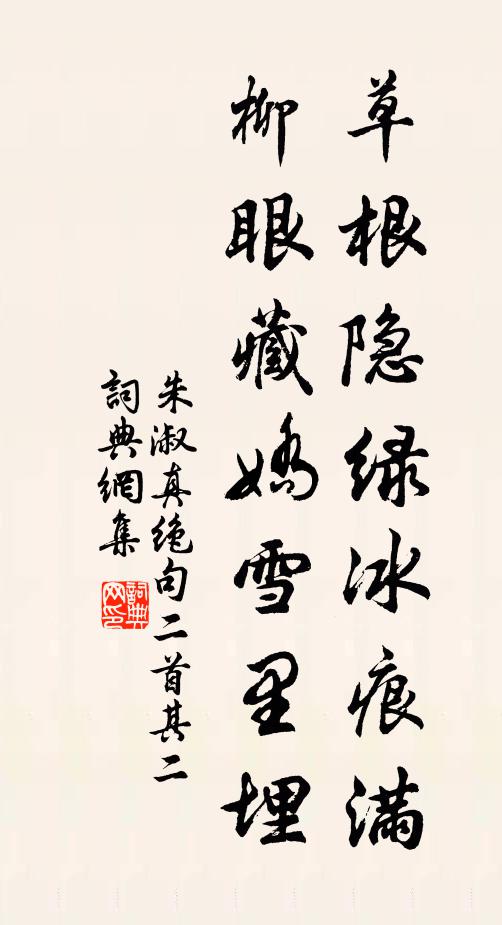 草根隐绿冰痕满
柳眼藏娇雪里埋
朱淑真绝句二首其二
詞典網集
詞典
网印